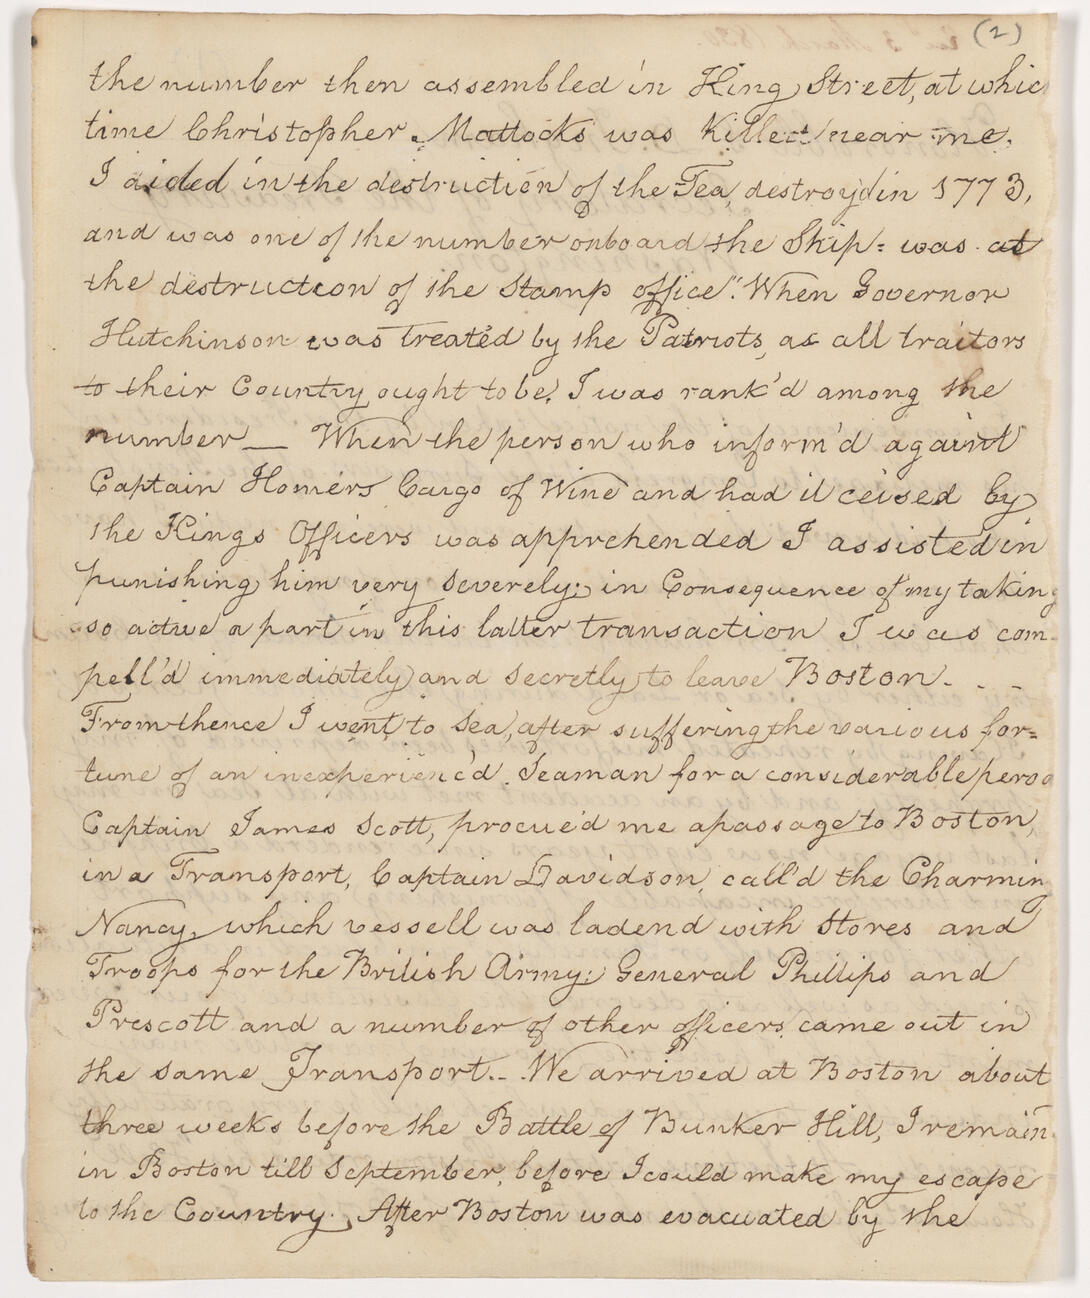 (2)
the number then assembled in King Street, at whic
time Christopher Mattocks was Killed near me.
I aided in the destruction of the Tea, destroy'd in 1773,
and was one of the number onboard the Ship = was at
the destruction of the Stamp office". When Governor
Hutchinson was treated by the Patriots, as all traitors
to their Country ought to be, I was rank'd among the
number — When the person who inform'd against
Captain Homers Cargo of Wine and had it ceised by
the Kings Officers was apprehended I assisted in
punishing him very severely; in Consequence of my taking
so active a part in this latter transaction I was com-
pell'd immediately and secretly to leave Boston - - -
From thence I went to Sea, after suffering the various for=
tune of an inexperienc'd Seaman for a considerable perod
Captain James Scott, procue'd me a passage to Boston,
in a Transport, Captain Davidson, call'd the Charming
Nancy, which vessell was ladend with Stores and
Troops for the British Army; General Phillips and
Prescott and a number of other officers came out in
the same Transport.- We arrived at Boston about
three weeks before the Battle of Bunker Hill, I remain
in Boston till September, before I could make my escape
to the Country. After Boston was evacuated by the